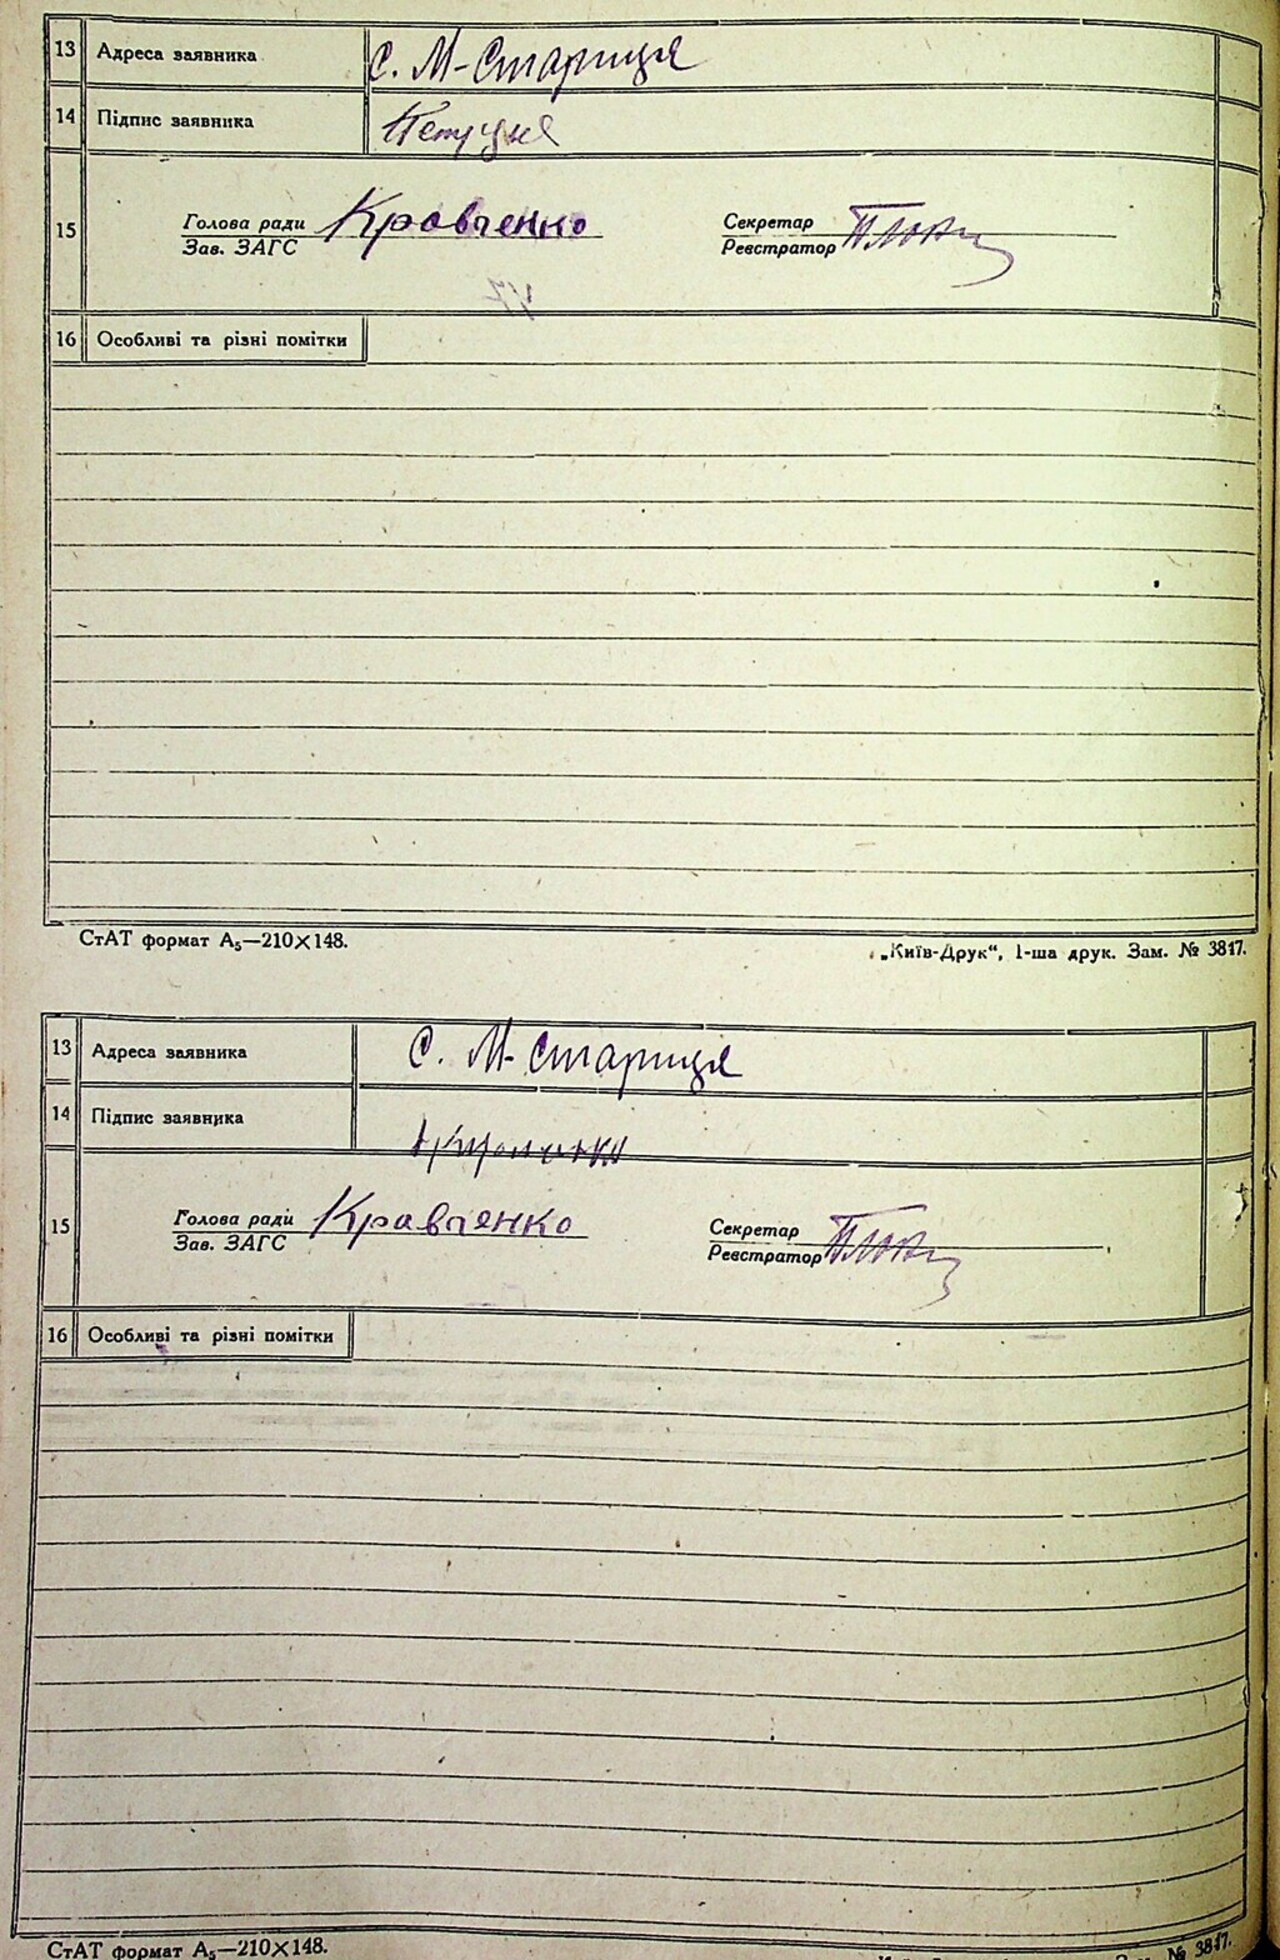 13 Адреса заявника С. М-Стариця
14 Підпис заявника
15 Голова ради Кравченко Секретар
Зав. ЗАГС Реєстратор
16 Особливі та різні помітки
СтАТ формат А₅—210×148. „Київ-Друк“, 1-ша друк. Зам. № 3817.
13 Адреса заявника С. М-Стариця
14 Підпис заявника
15 Голова ради Кравченко Секретар
Зав. ЗАГС Реєстратор
16 Особливі та різні помітки
СтАТ формат А₅—210×148. № 3817.